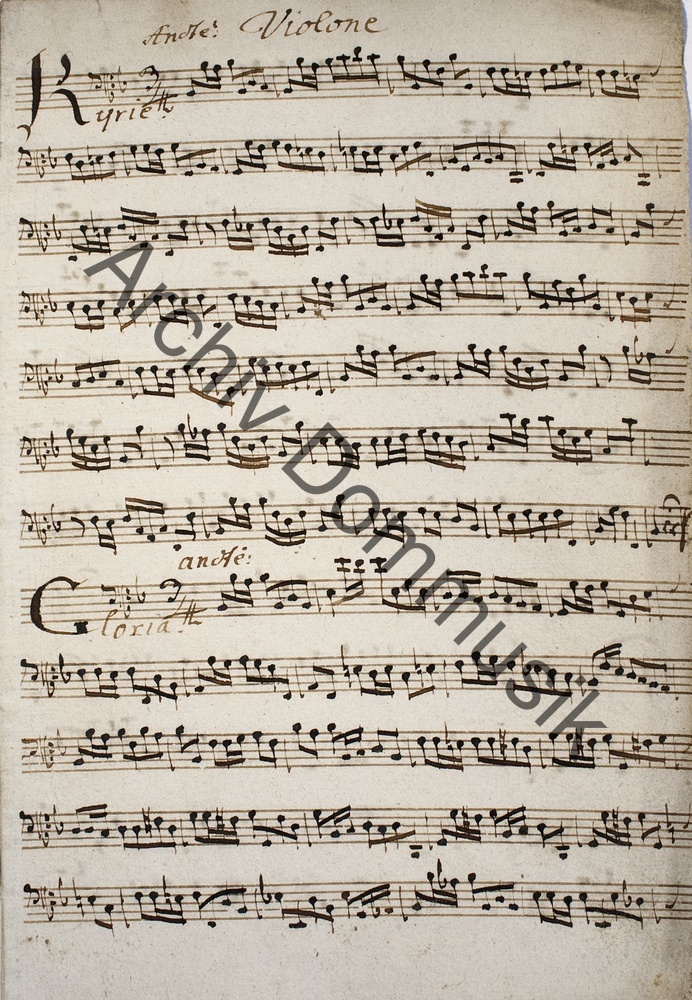 Andte: Violone
Kyrie
andte:
Gloria
Archiv Dommusik